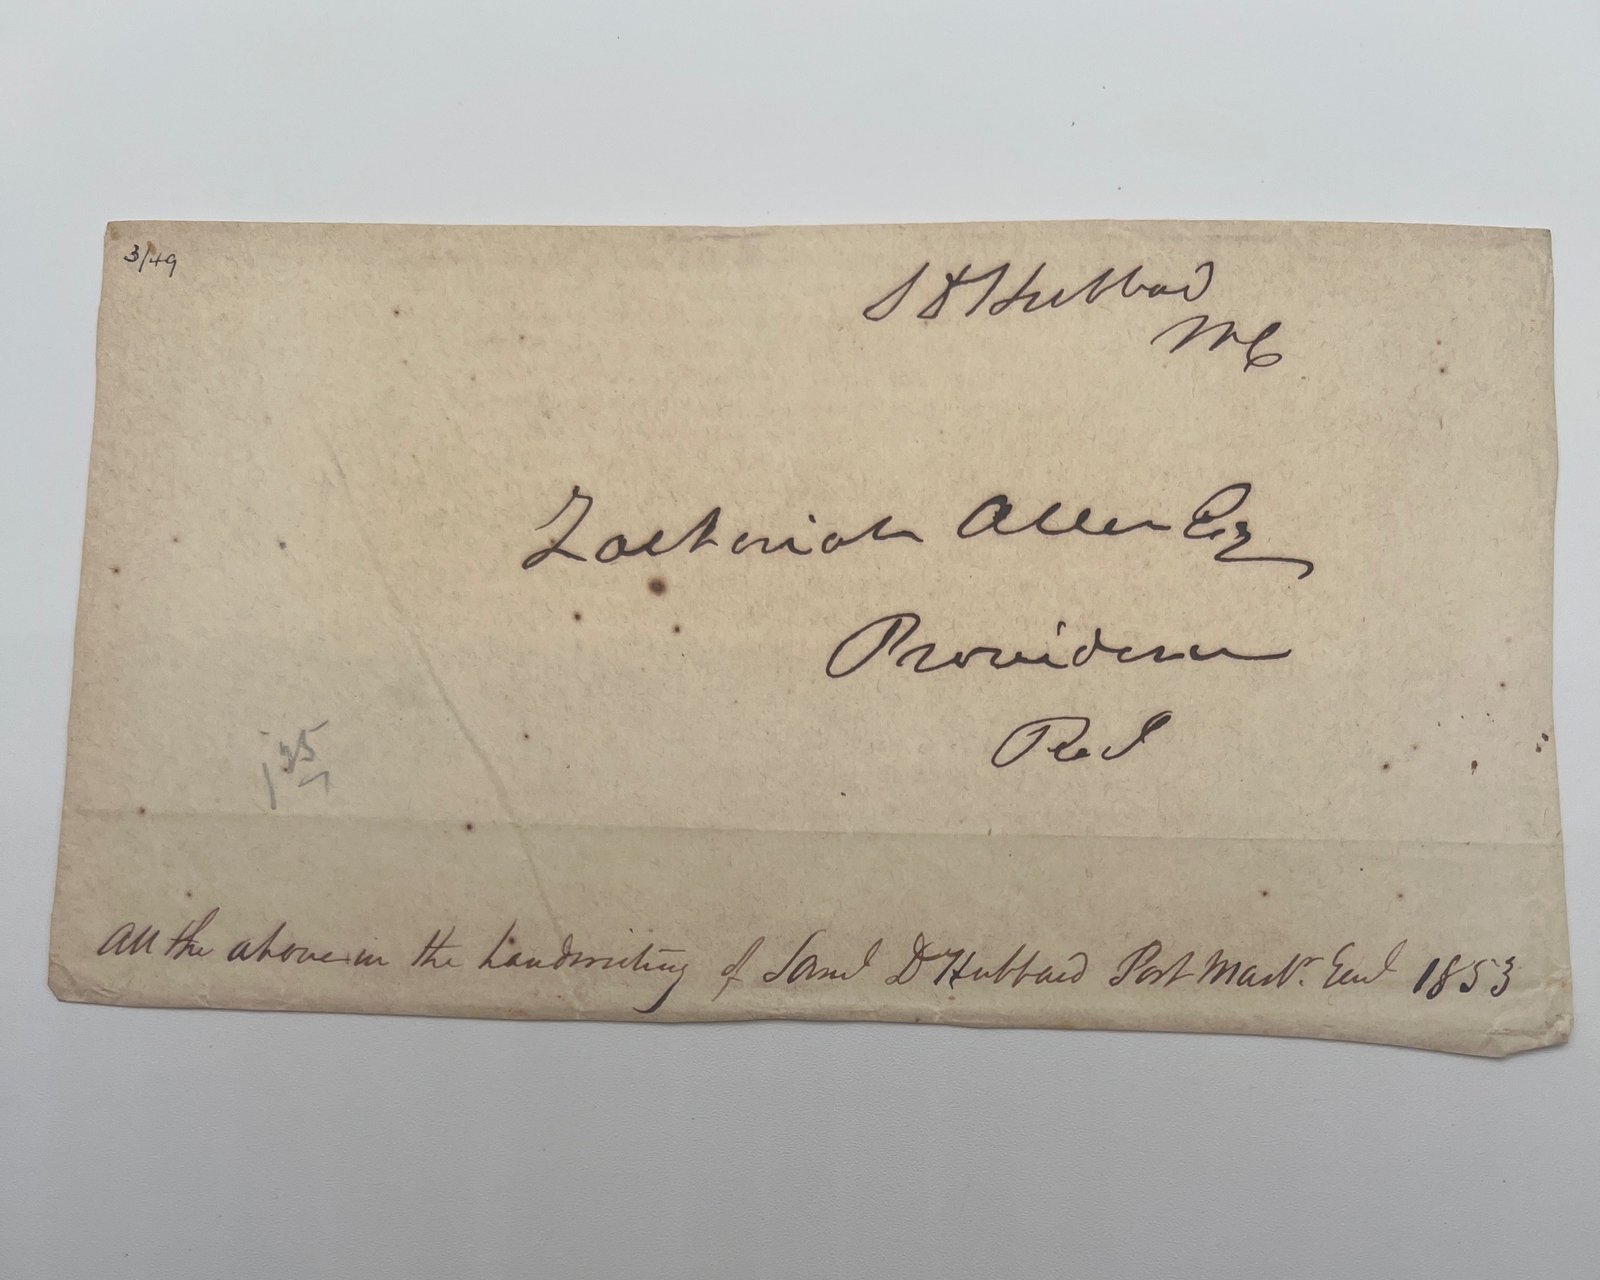 3/49
S D Hubbard
MC
Zachariah Allen Esq
Providence
R.I
All the above in the handwriting of Saml D Hubbard Post Mastr. Genl 1853